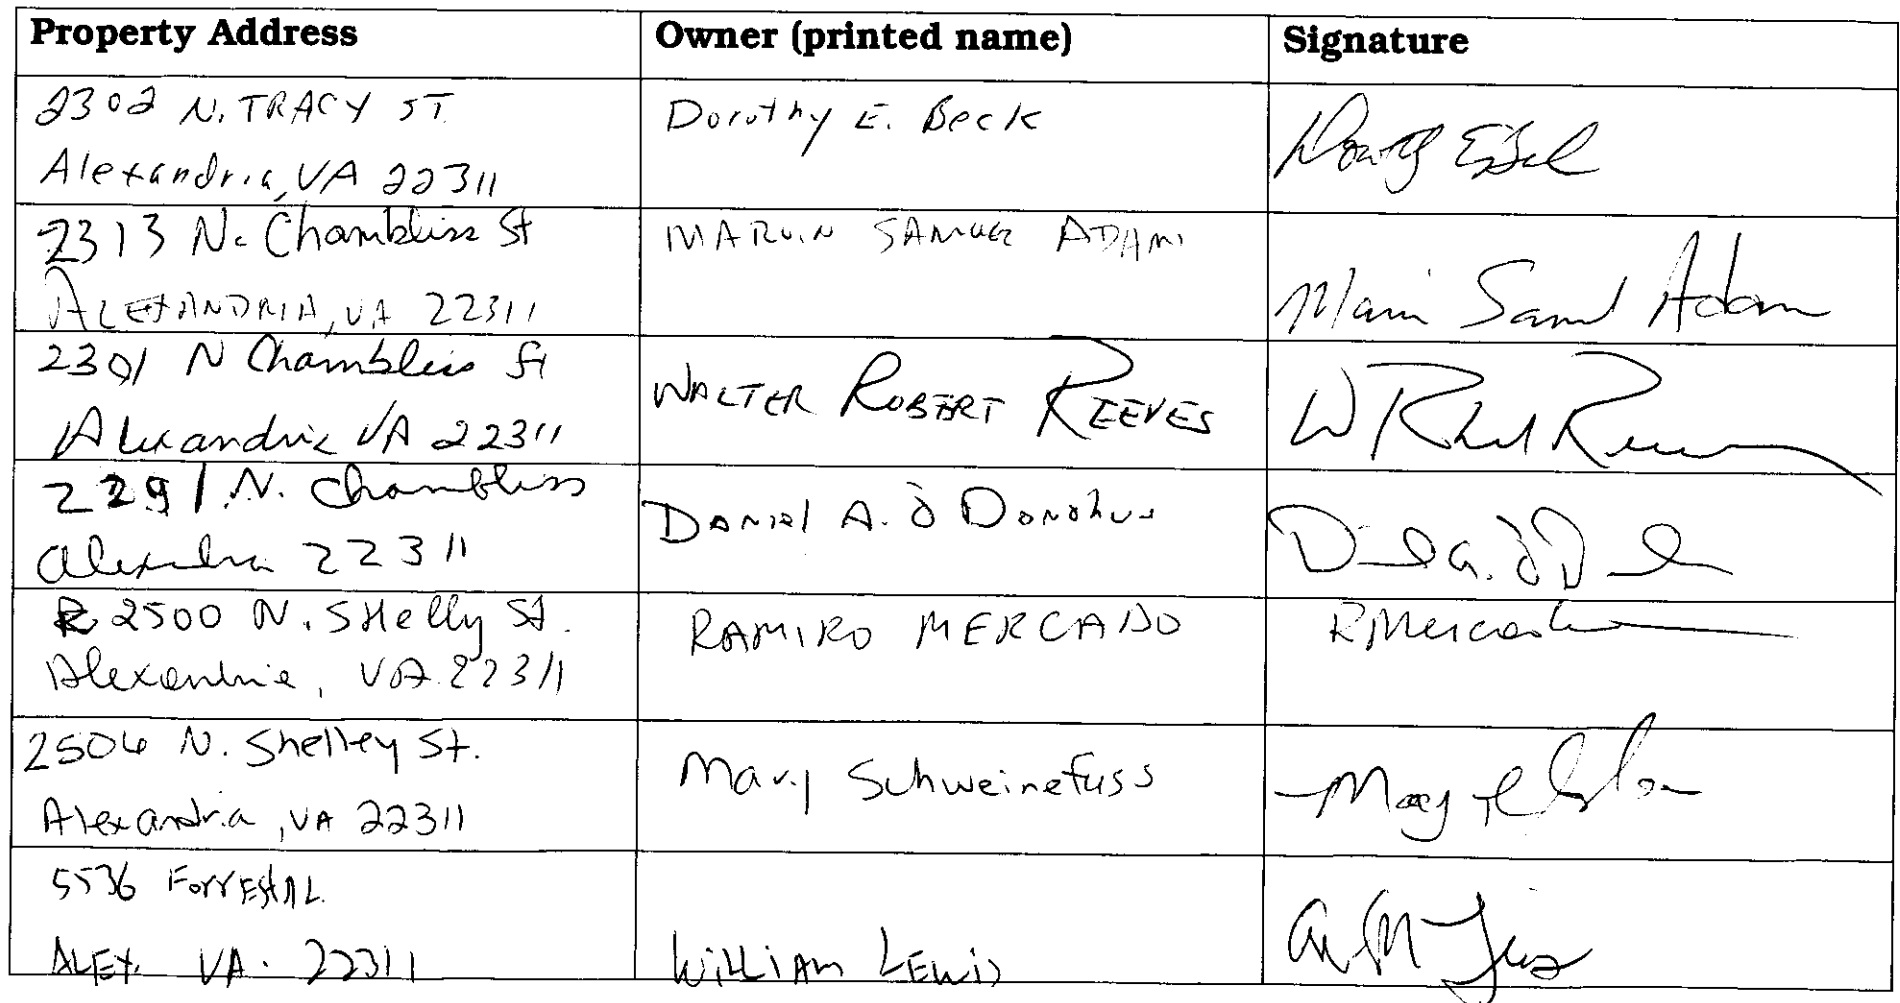 Property Address Owner (printed name) Signature
2302 N. TRACY ST.
Alexandria, VA 22311
Dorothy E. Beck
2313 N. Chambliss St
ALEXANDRIA, VA 22311
MARVIN SAMUEL ADAMS
Samuel Adams
2301 N Chambliss St
Alexandria VA 22311
WALTER ROBERT REEVES
W Robert Reeves
2291 N. Chambliss
Alexandria 22311
Daniel A. O'Donohue
2500 N. SHelly St.
Alexandria, VA 22311
RAMIRO MERCADO
RMercado
2506 N. Shelley St.
Alexandria, VA 22311
Mary Schweinefuss
Mary
5536 ForrEStAL
ALEX. VA. 22311
WILLIAM LEWIS